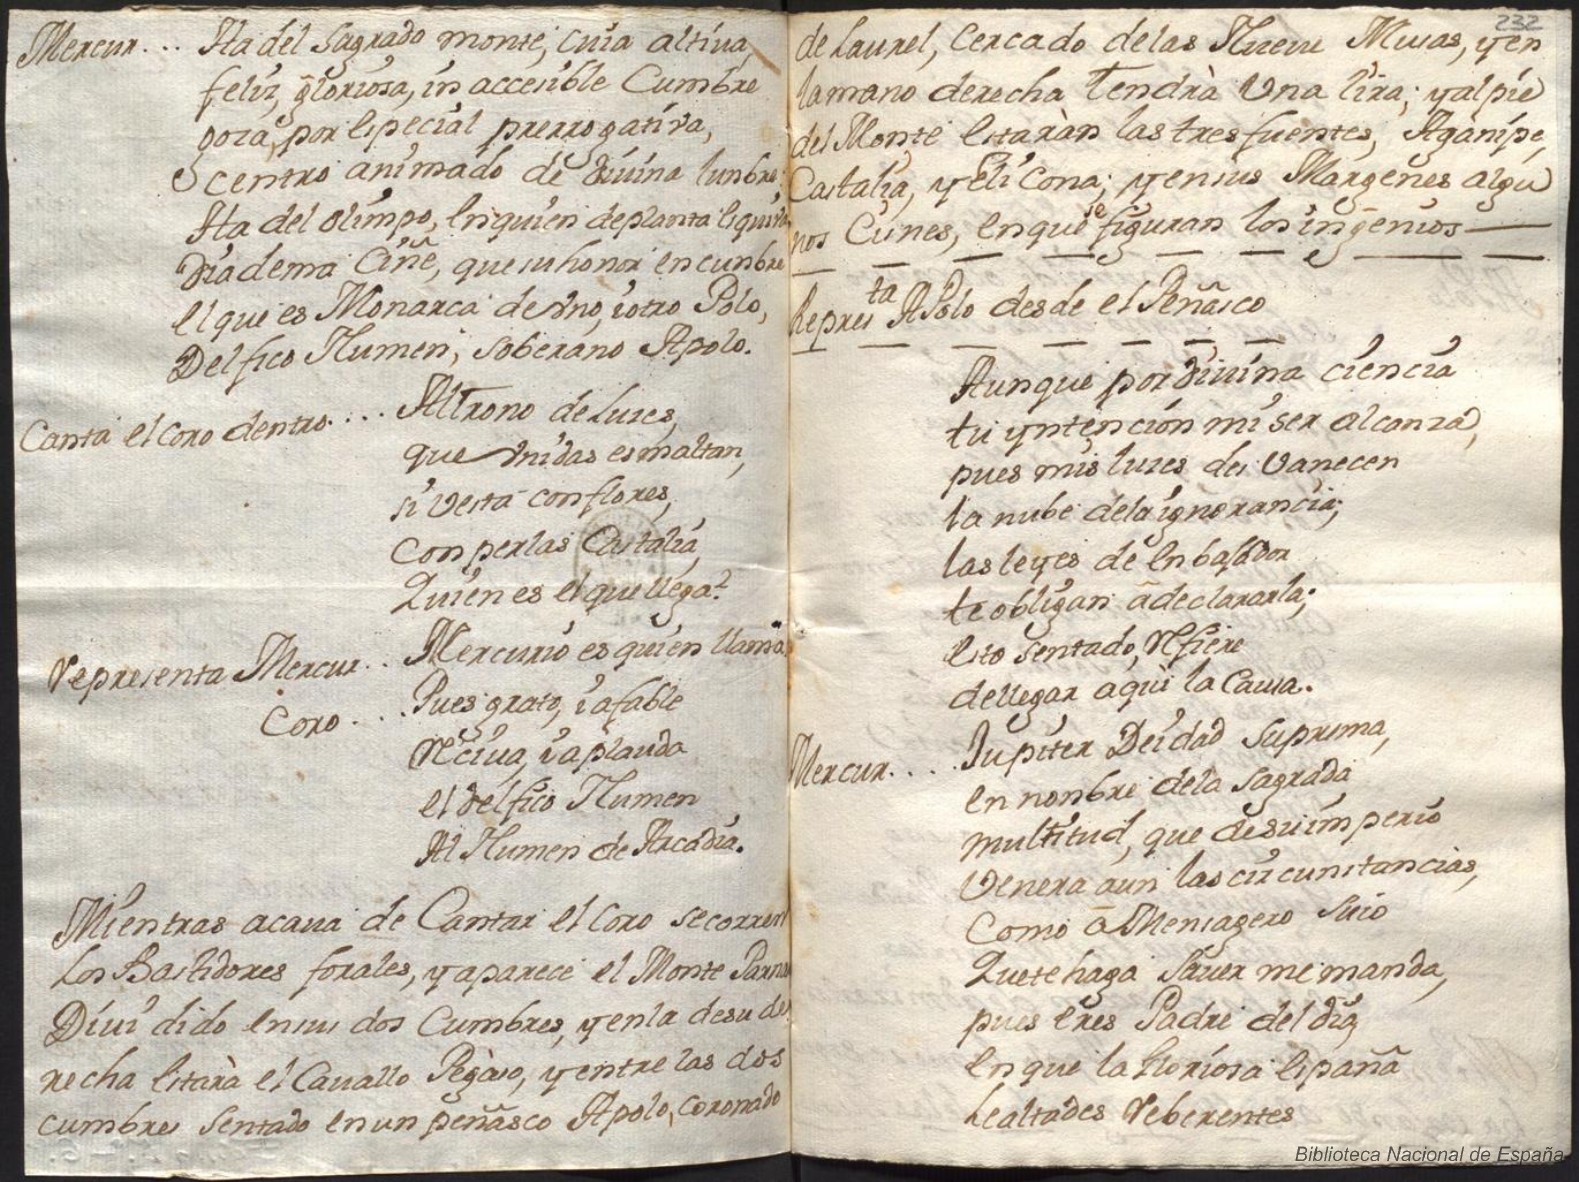 Mercur... Ha del Sagrado monte, cuia altiua,
feliz, gloriosa, in accesible Cumbre
goza, por especial prerrogatiua,
centro animado de diuina lunbre:
Ha del Olimpo, en quien de planta esquiva
Diadema Ciñe, que su honor encunbre
el que es Monarca de vno, i otro Polo,
Delfico Numen, soberano Apolo.
Canta el Coro dentro.... Al trono de Luzes,
que vnidas esmaltan,
si vesta con flores,
con perlas Castalia,
Quien es el que llega?
Representa Mercur... Mercurio es quien llama.
Coro... Pues grato, i afable
Reciua, i aplauda
el delfico Numen
Al Numen de Arcadia.
Mientras acaua de Cantar el Coro se corren
los Bastidores forales, y aparece el Monte Parna
Diui dido en sus dos Cumbres, y en la de su de
recha estarà el Cauallo Pegàso, y entre las dos
cumbres Sentado en un peñasco Apolo, coronado
232
de Laurel, Cercado de las Nueue Musas, y en
la mano derecha tendrà Una lira; y al pie
del Monte estaràn las tres fuentes, Aganipe,
Castalia, y Elicona; y en sus Margenes algu
nos Cisnes, en que se figuran los ingenios
Represta Apolo desde el Peñasco
Aunque por diuina ciencia
tu yntencion mi ser alcanza,
pues mis luzes des vanecen
la nube de la ignorancia;
las leyes de Enbajador
te obligan à declararla;
esto sentado, Refiere
de llegar aqui la Causa.
Mercur.... Jupiter Deidad Suprema,
en nonbre de la Sagrada
multitud, que de su imperio
Venera aun las circunstancias,
Como à Mensagero Suio
Que te haga Sauer me manda,
pues eres Padre del dia,
en que la Gloriosa España
Lealtades Reberentes
Biblioteca Nacional de España